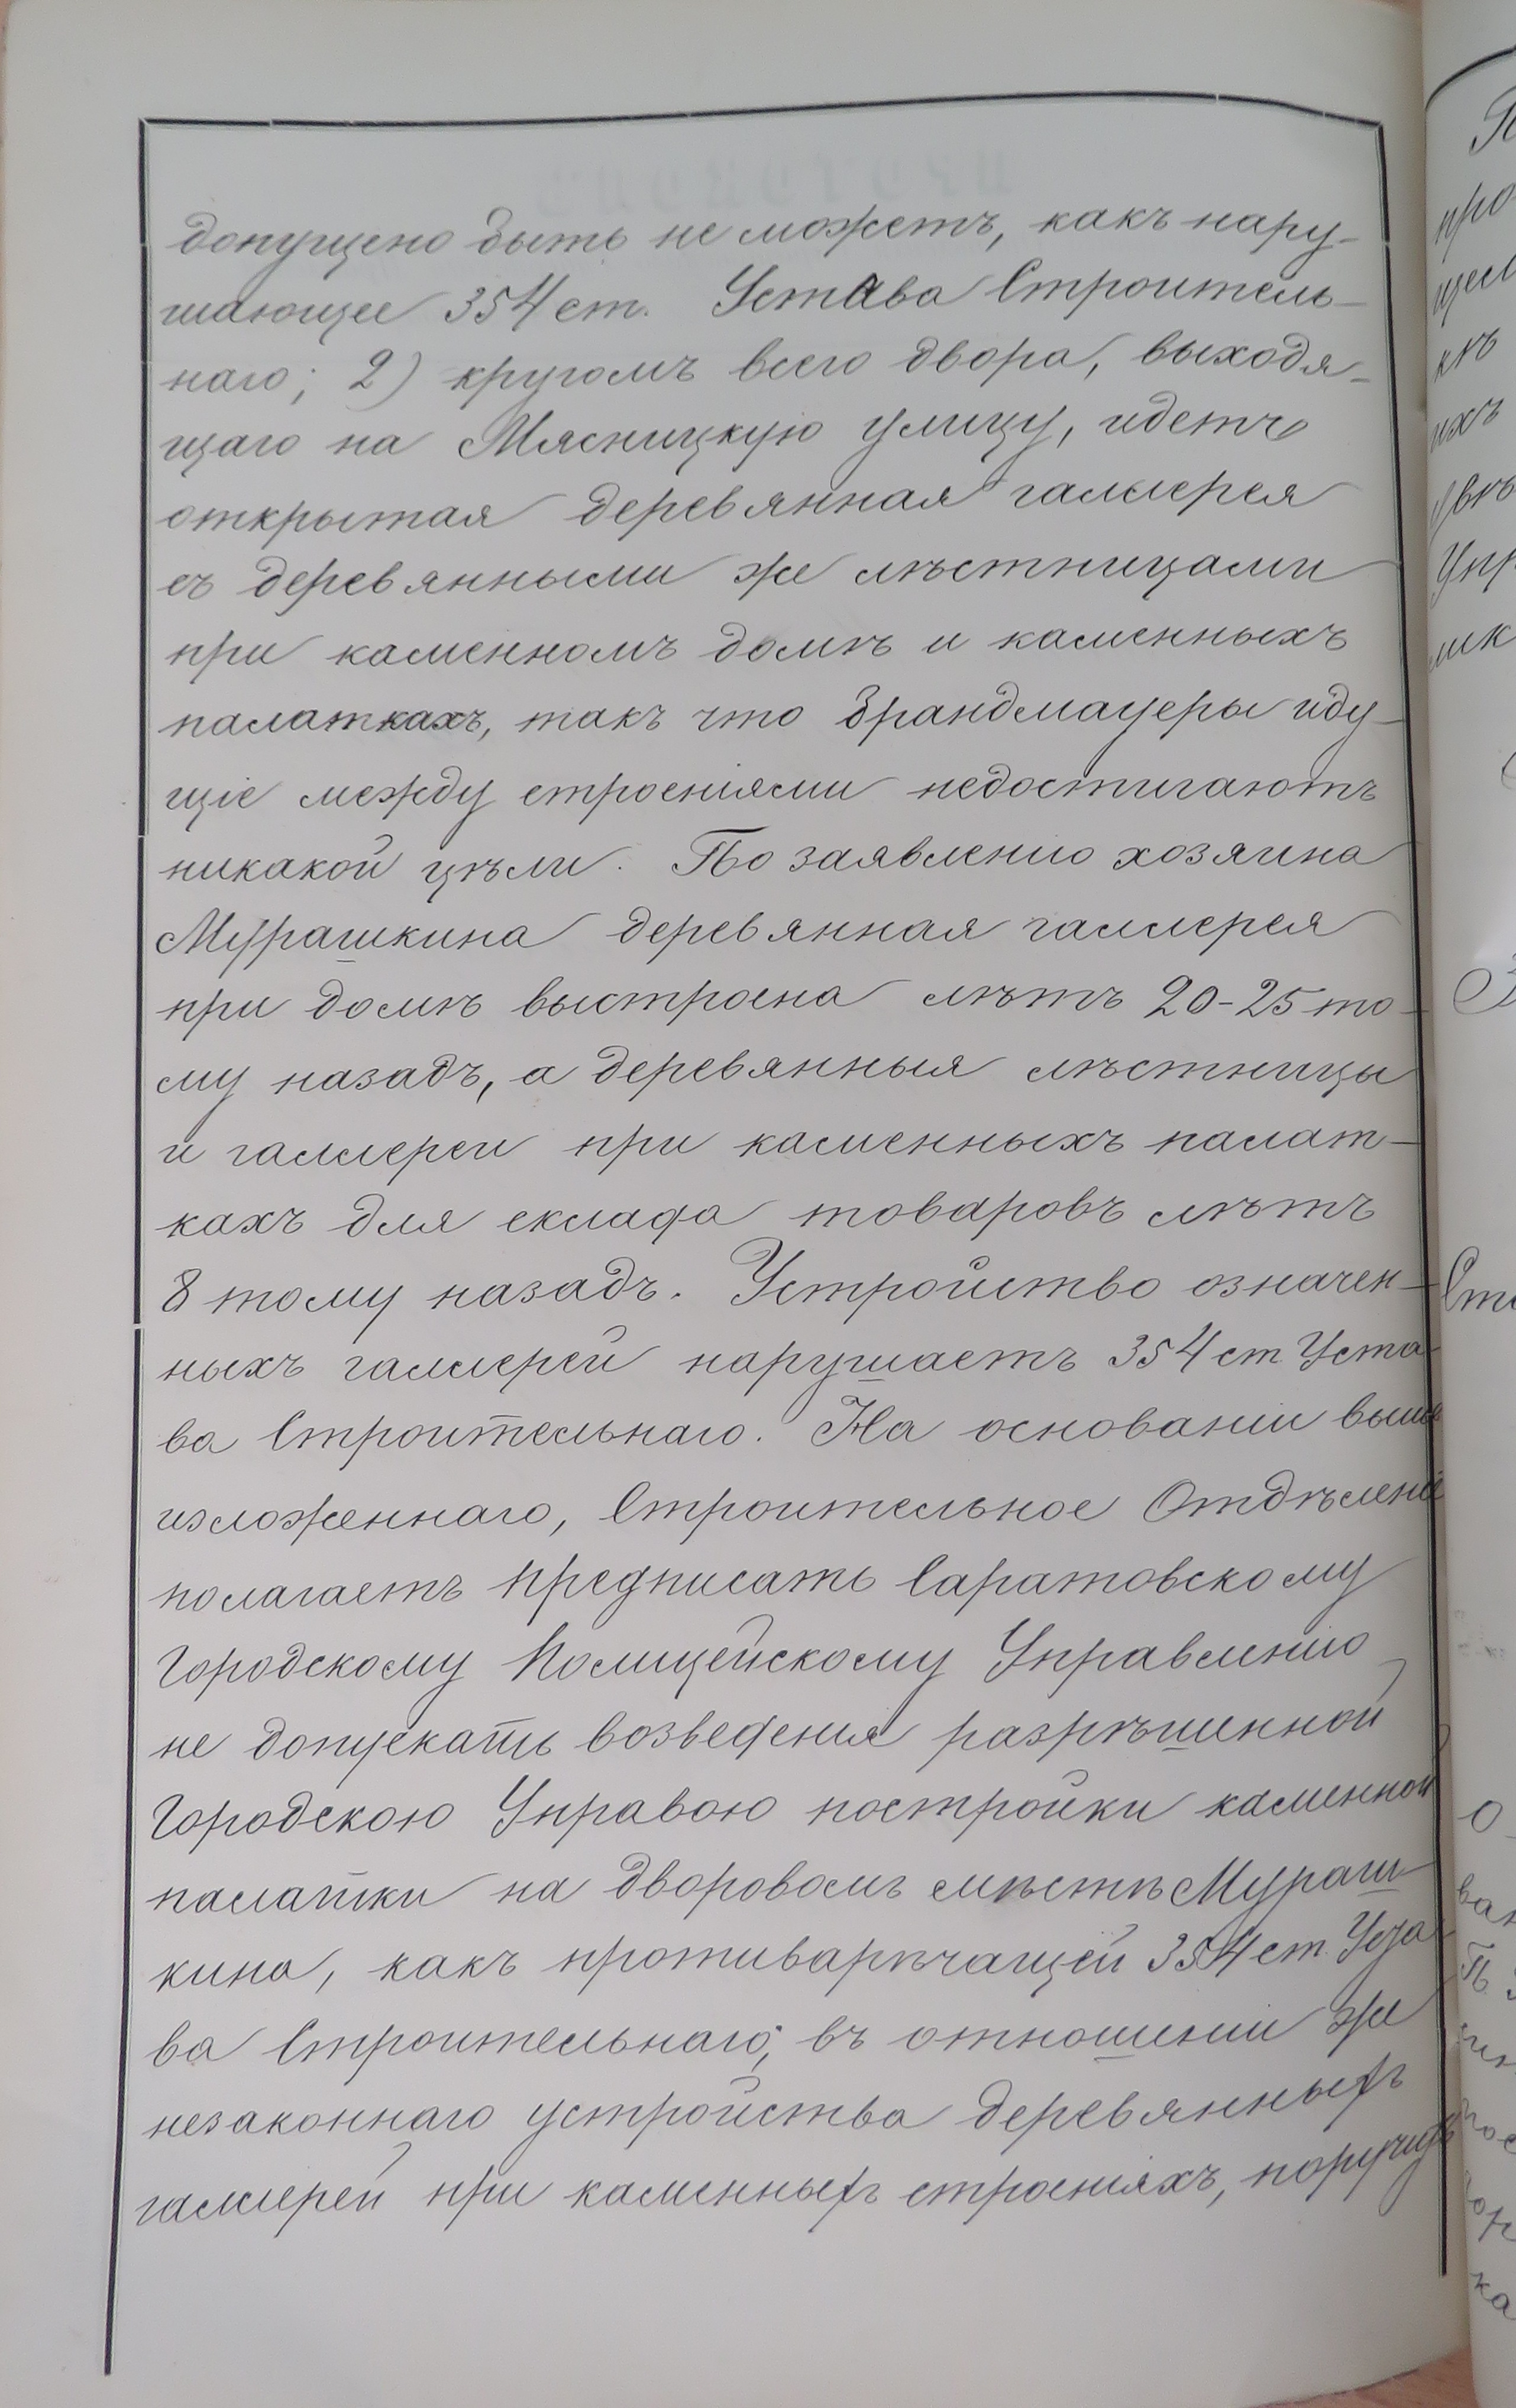 допущено быть не можетъ, какъ нару-
шающее 354 ст. Устава Строитель-
наго; 2) кругомъ всего двора, выходя-
щаго на Мясницкую улицу, идетъ
открытая деревянная галлерея
съ деревянными же лѣстницами
при каменномъ домѣ и каменныхъ
палаткахъ, такъ что брандмауеры иду-
щіе между строеніями недостигаютъ
никакой цѣли. По заявленію хозяина
Мурашкина деревянная галлерея
при домѣ выстроена лѣтъ 20-25 то-
му назадъ, а деревянныя лѣстницы
и галлереи при каменныхъ палат-
кахъ для склада товаровъ лѣтъ
8 тому назадъ. Устройство означен-
ныхъ галлерей нарушаетъ 354 ст Уста-
ва Строительнаго. На основаніи выше
изложеннаго, Строительное Отдѣленіе
полагаетъ предписать Саратовскому
Городскому Полицейскому Управленію
не допускать возведенія разрѣшенной
Городскою Управою постройки каменной
палатки на дворовомъ мѣстѣ Мураш-
кина, какъ противарѣчащей 354 ст. Уста
ва Строительнаго; въ отношеніи же
незаконнаго устройства деревянныхъ
галлерей при каменныхъ строеніяхъ, поручить